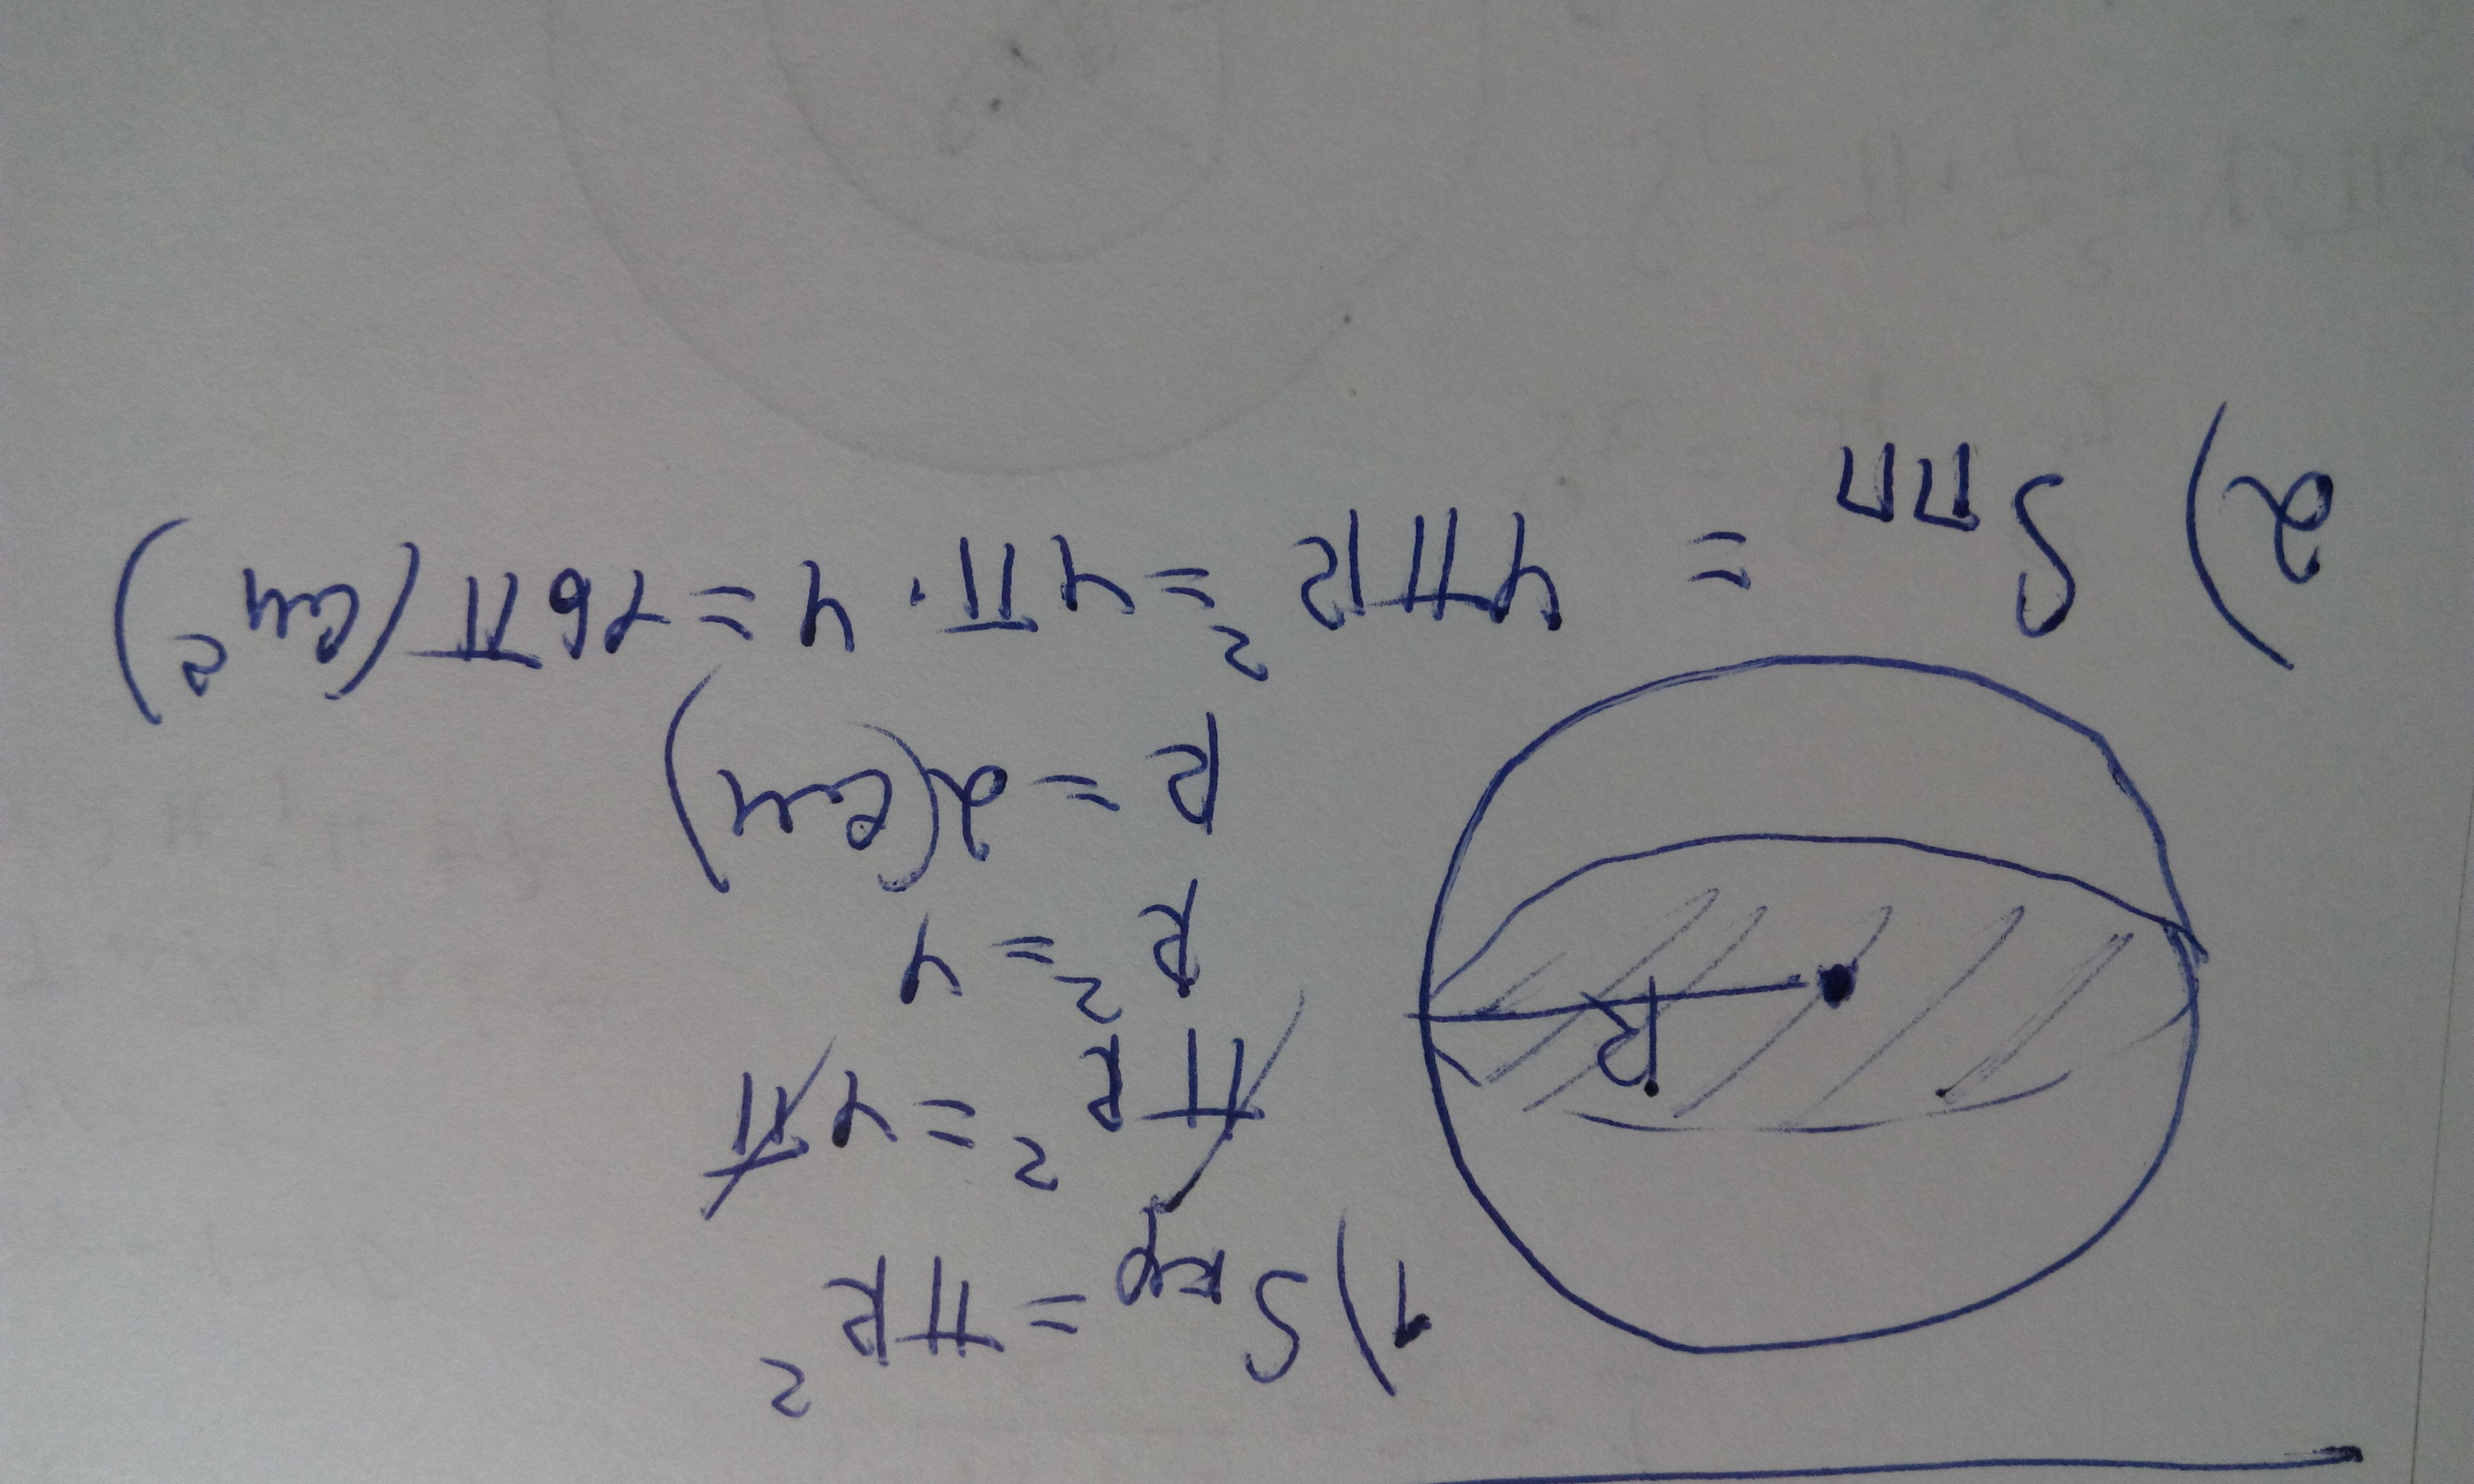 1) Sкр = πR²
πR² = 4π
R² = 4
R = 2(см)
R
2) Sпп = 4πR² = 4π · 4 = 16π(см²)